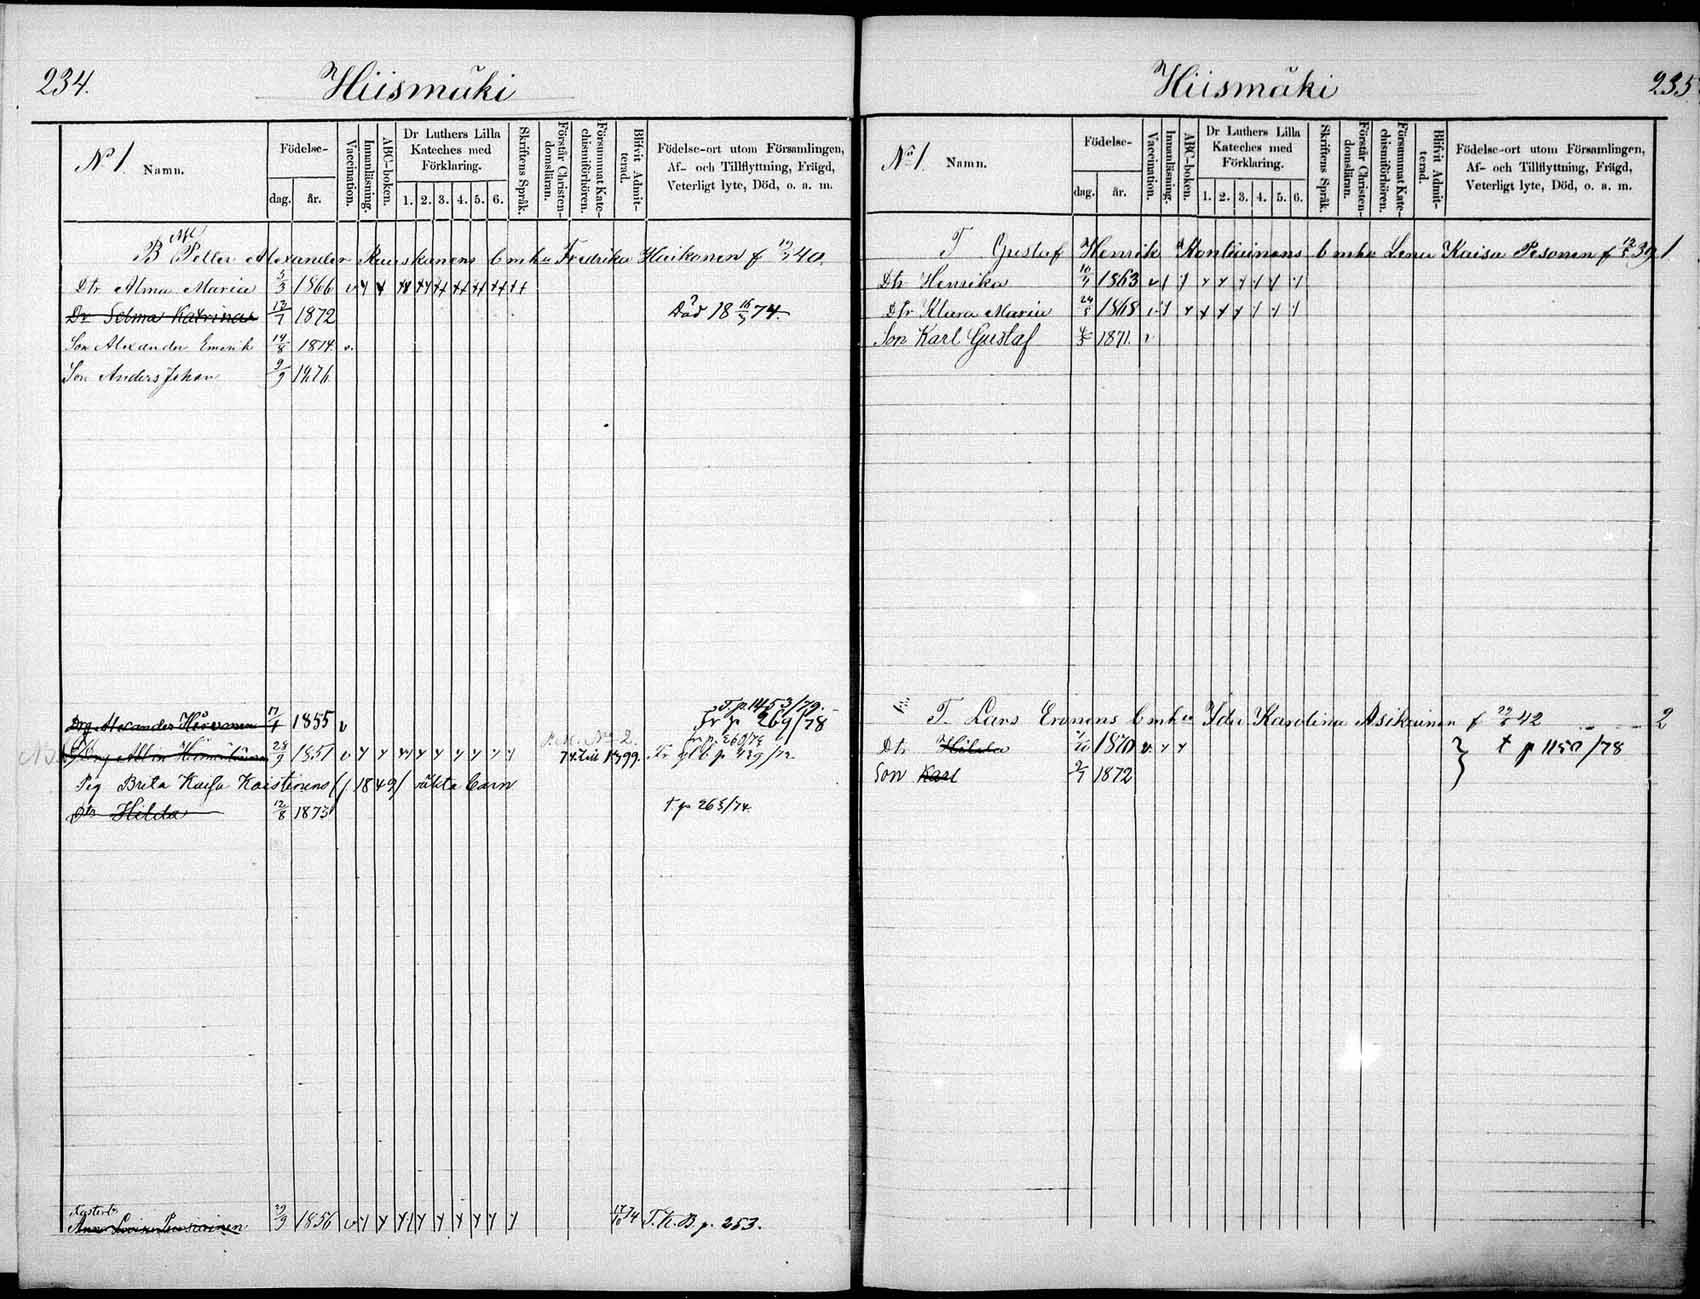 234.
Hiismäki
No 1. Namn.
Födelse-
dag. år.
Vaccination.
Innanläsning.
ABC-boken.
Dr Luthers Lilla Kateches med Förklaring.
1. 2. 3. 4. 5. 6.
Skriftens Språk.
Förstår Christen-domsläran.
Försummat Kate-chismiförhören.
Blifvit Admit-terad.
Födelse-ort utom Församlingen,
Af- och Tillflyttning, Frägd,
Veterligt lyte, Död, o. a. m.
B Petter Alexander Ruuskanens Fredrika Haikonen f 40.
Dtr Alma Maria 3/3 1866
Dr Selma Katrina 13/1 1872 Död 18 16/3 74.
Son Alexander Emerik 14/8 1874 v.
Son Anders Johan 2/9 1876
T. p. 1453/79.
Drg. Alexander Hirvonen 17/1 1855 v fr p 269/78
Albin 28/9 1851
Pig Brita Kaisa Kaistinens (f 1849) oäkta barn
Dtr Hilda 12/8 1873 t p 268/74.
29/9 1856 T. K. B. p. 253.
Hiismäki
235
No 1. Namn.
Födelse-
dag. år.
Vaccination.
Innanläsning.
ABC-boken.
Dr Luthers Lilla Kateches med Förklaring.
1. 2. 3. 4. 5. 6.
Skriftens Språk.
Förstår Christen-domsläran.
Försummat Kate-chismiförhören.
Blifvit Admit-terad.
Födelse-ort utom Församlingen,
Af- och Tillflyttning, Frägd,
Veterligt lyte, Död, o. a. m.
T Gustaf Henrik Lena Kaisa Pesonen f 12/5 39 1
Dtr Henrika 1863
Dtr Klara Maria 24/5 1868
Son Karl Gustaf 1871.
T. Lars Eronens Ida Karolina Asikainen f 42 2
Dtr Hilda 1870 t p 1150/78
Son Karl 2/7 1872